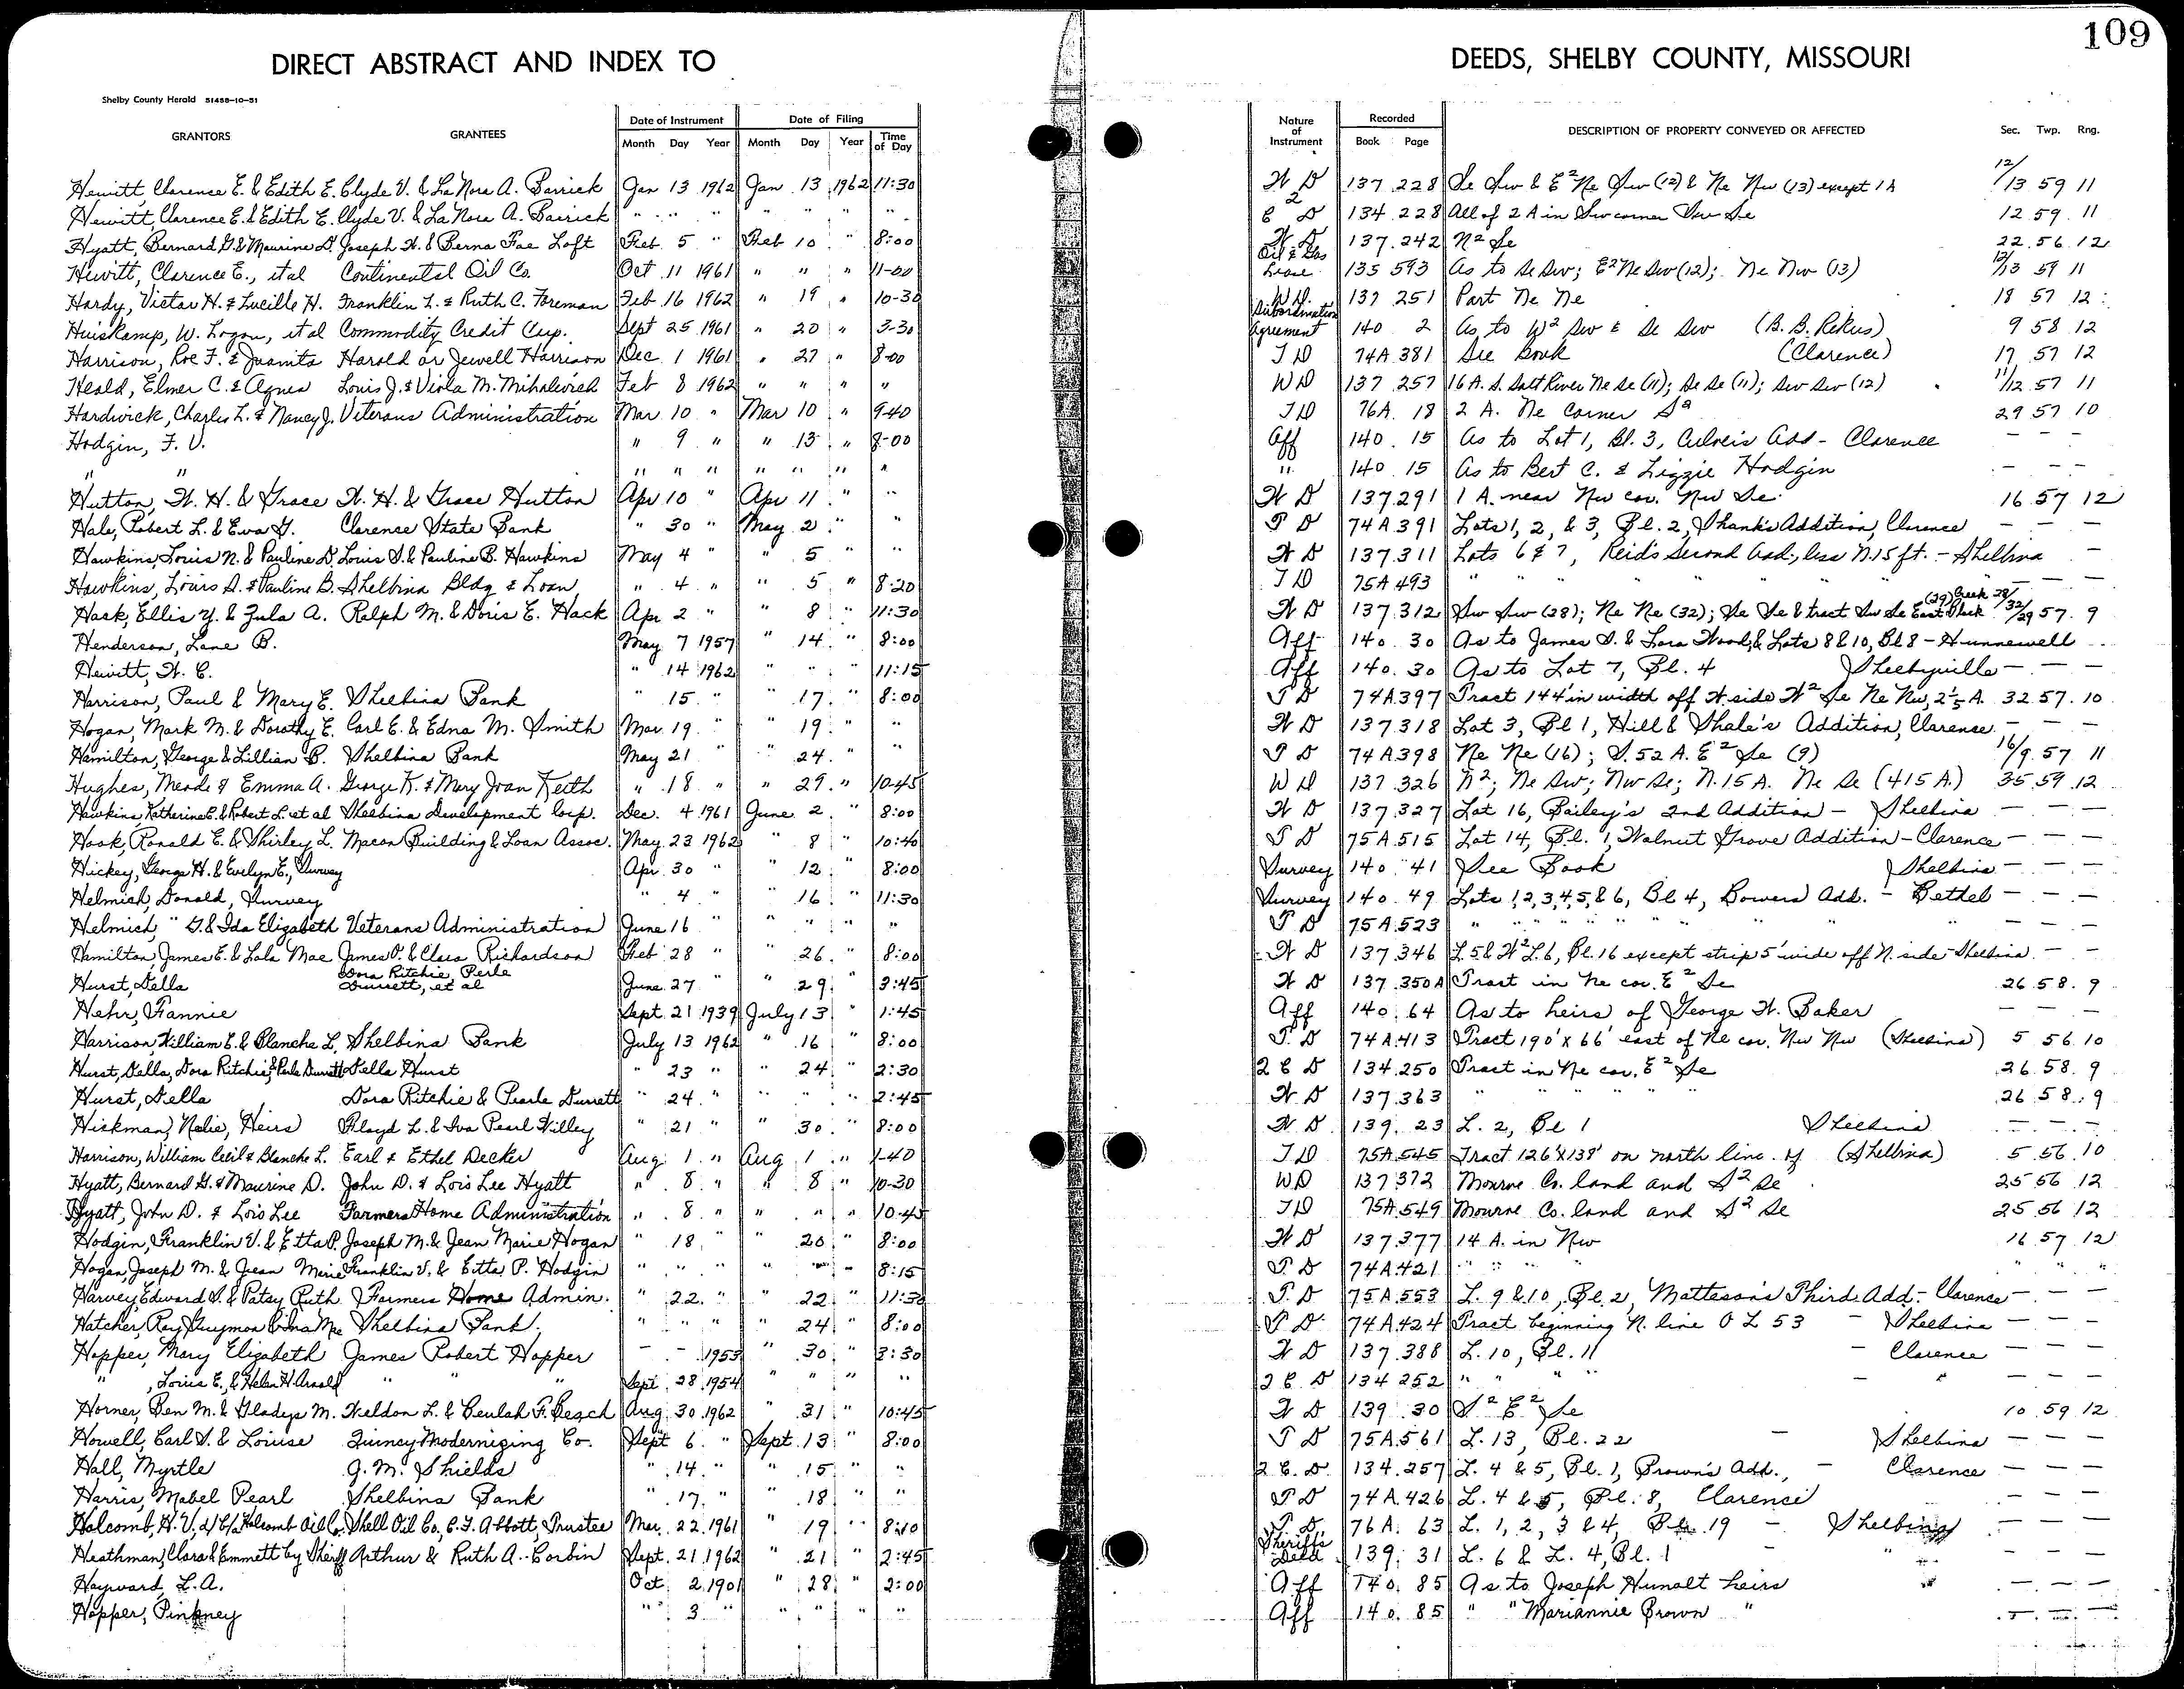 109
DIRECT ABSTRACT AND INDEX TO DEEDS, SHELBY COUNTY, MISSOURI
Shelby County Herald 51458-10-51
GRANTORS GRANTEES Date of Instrument Month Day Year Date of Filing Month Day Year Time of Day Nature of Instrument Recorded Book Page DESCRIPTION OF PROPERTY CONVEYED OR AFFECTED Sec. Twp. Rng.
Hewitt, Clarence E. & Edith E. Clyde V. & La Nora A. Barrick Jan 13 1962 Jan 13 1962 11:30 W D 137 228 Se Sw & E² Ne Sw (12) & Ne Nw (13) except 1 A 12/13 59 11
Hewitt, Clarence E. & Edith E. Clyde V. & La Nora A. Barrick " " " " " " " 2 C D 134 228 All of 2 A in Sw corner Sw Se 12 59 11
Hyatt, Bernard G. & Maurine D. Joseph W. & Berna Fae Loft Feb 5 " Feb 10 " 8:00 W D 137 242 N² Se 22 56 12
Hewitt, Clarence E., et al Continental Oil Co. Oct 11 1961 " " " 11-00 Oil & Gas Lease 135 593 As to Se Sw; E² Ne Sw (12); Ne Nw (13) 12/13 59 11
Hardy, Victor H. & Lucille H. Franklin L. & Ruth C. Foreman Feb 16 1962 " 19 " 10-30 W D. 137 251 Part Ne Ne 18 57 12
Huiskamp, W. Logan, et al Commodity Credit Cup. Sept 25 1961 " 20 " 3-30 Subordination Agreement 140 2 As to W² Sw & Se Sw (B. B. Rekus) 9 58 12
Harrison, Roe F. & Juanita Harold or Jewell Harrison Dec 1 1961 " 27 " 8-00 T D 74A 381 See Book (Clarence) 17 57 12
Heald, Elmer C. & Agnes Louis J. & Viola M. Mihalevich Feb 8 1962 " " " " W D 137 257 16 A. S. Salt River Ne Se (11); Se Se (11); Sw Sw (12) 11/12 57 11
Hardwick, Charles L. & Nancy J. Veterans Administration Mar 10 " Mar 10 " 9-40 T D 76A 18 2 A. Ne Corner S² 29 57 10
Hodgin, F. V. " 9 " " 13 " 8-00 Aff 140 15 As to Lot 1, Bl. 3, Culver's Add - Clarence — — —
" " " " " " " " " " 140 15 As to Bert C. & Lizzie Hodgin — — —
Hutton, W. H. & Grace W. H. & Grace Hutton Apr 10 " Apr 11 " " W D 137 291 1 A. near Nw cor. Nw Se 16 57 12
Hale, Robert L. & Eva G. Clarence State Bank " 30 " May 2 " " T D 74A 391 Lots 1, 2, & 3, Bl. 2, Shank's Addition, Clarence — — —
Hawkins, Louis N. & Pauline D. Louis D. & Pauline B. Hawkins May 4 " " 5 " " W D 137 311 Lots 6 & 7, Reid's Second Add., less N. 15 ft. - Shelbina —
Hawkins, Louis D. & Pauline B. Shelbina Bldg & Loan " 4 " " 5 " 8:20 T D 75A 493 " " " " " " — — —
Hack, Ellis Y. & Zula A. Ralph M. & Doris E. Hack Apr 2 " " 8 " 11:30 W D 137 312 Sw Sw (28); Ne Ne (32); Se Se & tract Sw Se East Black Creek (29) 28/32/29 57 9
Henderson, Lane B. May 7 1957 " 14 " 8:00 Aff 140 30 As to James D. & Lora Wood, & Lots 8 & 10, Bl 8 - Hunnewell
Hewitt, W. C. " 14 1962 " " " 11:15 Aff 140 30 As to Lot 7, Bl. 4 Shelbyville — — —
Harrison, Paul & Mary E. Shelbina Bank " 15 " " 17 " 8:00 T D 74A 397 Tract 144' in width off W. side W² Se Ne Nw, 2 1/5 A. 32 57 10
Hogan, Mark M. & Dorothy E. Carl E. & Edna M. Smith Mar 19 " " 19 " " W D 137 318 Lot 3, Bl 1, Hill & Shale's Addition, Clarence — — —
Hamilton, George & Lillian B. Shelbina Bank May 21 " " 24 " " T D 74A 398 Ne Ne (16); S. 52 A. E² Se (9) 16/9 57 11
Hughes, Meade & Emma A. George K. & Mary Joan Keith " 18 " " 29 " 10-45 W D 137 326 N²; Ne Sw; Nw Se; N. 15 A. Ne Se (415 A.) 35 59 12
Hawkins, Katherine E. & Robert L. et al Shelbina Development Corp. Dec. 4 1961 June 2 " 8:00 W D 137 327 Lot 16, Bailey's 2nd Addition - Shelbina — — —
Hook, Ronald E. & Shirley L. Macon Building & Loan Assoc. May 23 1962 " 8 " 10:40 T D 75A 515 Lot 14, Bl. 1, Walnut Grove Addition - Clarence — — —
Hickey, George H. & Evelyn E., Survey Apr 30 " " 12 " 8:00 Survey 140 41 See Book Shelbina — — —
Helmich, Donald, Survey " 4 " " 16 " 11:30 Survey 140 49 Lots 1, 2, 3, 4, 5, & 6, Bl 4, Bowers Add. - Bethel — — —
Helmich, " G. & Ida Elizabeth Veterans Administration June 16 " " " " " T D 75A 523 " " " " " — — —
Hamilton, James E. & Lola Mae James O. & Clara Richardson Feb 28 " " 26 " 8:00 W D 137 346 L. 5 & W² L. 6, Bl. 16 except strip 5' wide off N. side - Shelbina — —
Hurst, Della Dora Ritchie, Perle Durrett, et al June 27 " " 29 " 3:45 W D 137 350A Tract in Ne cor. E² Se 26 58 9
Hehr, Fannie Sept 21 1939 July 13 " 1:45 Aff 140 64 As to heirs of George W. Baker — — —
Harrison, William E. & Blanche L. Shelbina Bank July 13 1962 " 16 " 8:00 T D 74A 413 Tract 190' x 66' east of Ne cor. Nw Nw (Shelbina) 5 56 10
Hurst, Della, Dora Ritchie, & Perle Durrett Della Hurst " 23 " " 24 " 2:30 2 C D 134 250 Tract in Ne cor. E² Se 26 58 9
Hurst, Della Dora Ritchie & Pearle Durrett " 24 " " " " 2:45 W D 137 363 " " " " " 26 58 9
Hickman, Nelie, Heirs Floyd L. & Iva Pearl Willey " 21 " " 30 " 8:00 W D 139 23 L. 2, Bl 1 Shelbina — — —
Harrison, William Cecil & Blanche L. Earl & Ethel Decker Aug 1 " Aug 1 " 1-40 T D 75A 545 Tract 126' x 138' on north line of (Shelbina) 5 56 10
Hyatt, Bernard G. & Maurine D. John D. & Lois Lee Hyatt " 8 " " 8 " 10-30 W D 137 372 Monroe Co. land and S² Se 25 56 12
Hyatt, John D. & Lois Lee Farmers Home Administration " 8 " " " " 10-45 T D 75A 549 Monroe Co. land and S² Se 25 56 12
Hodgin, Franklin V. & Etta P. Joseph M. & Jean Marie Hogan " 18 " " 20 " 8:00 W D 137 377 14 A. in Nw 16 57 12
Hogan, Joseph M. & Jean Marie Franklin V. & Etta P. Hodgin " " " " " " 8:15 T D 74A 421 " " " " " " "
Harvey, Edward D. & Patsy Ruth Farmers Home Admin. " 22 " " 22 " 11:30 T D 75A 553 L. 9 & 10, Bl. 2, Matteson's Third Add. - Clarence — — —
Hatcher, Ray Guymon & Ina Mae Shelbina Bank " " " " 24 " 8:00 T D 74A 424 Tract beginning N. line O L 53 - Shelbina — — —
Hopper, Mary Elizabeth James Robert Hopper — — 1953 " 30 " 3:30 W D 137 388 L. 10, Bl. 11 - Clarence — — —
" , Louis E., & Helen H. Arnold " " " Sept 28 1954 " " " " 2 C D 134 252 " " " " - " — — —
Horner, Ben M. & Gladys M. Weldon L. & Beulah F. Beach Aug 30 1962 " 31 " 10:45 W D 139 30 S² E² Se 10 59 12
Howell, Carl D. & Louise Quincy Modernizing Co. Sept 6 " Sept 13 " 8:00 T D 75A 561 L. 13, Bl. 22 - Shelbina — — —
Hall, Myrtle G. M. Shields " 14 " " 15 " " 2 C. D 134 257 L. 4 & 5, Bl. 1, Brown's Add., - Clarence — — —
Harris, Mabel Pearl Shelbina Bank " 17 " " 18 " " T D 74A 426 L. 4 & 5, Bl. 8, Clarence — — —
Holcomb, H. V. d/b/a Holcomb Oil Co. Shell Oil Co., C. F. Abbott, Trustee Mar 22 1961 " 19 " 8:10 T D 76A 63 L. 1, 2, 3 & 4, Bl. 19 - Shelbina — — —
Heathman, Clara & Emmett by Sheriff Arthur & Ruth A. Corbin Sept. 21 1962 " 21 " 2:45 Sheriff's Deed 139 31 L. 6 & L. 4, Bl. 1 - " — — —
Hayward, L. A. Oct 2 1901 " 28 " 2:00 Aff 140 85 As to Joseph Hunolt heirs — — —
Hopper, Pinkney " 3 " " " " " Aff 140 85 " " Mariannie Brown " — — —